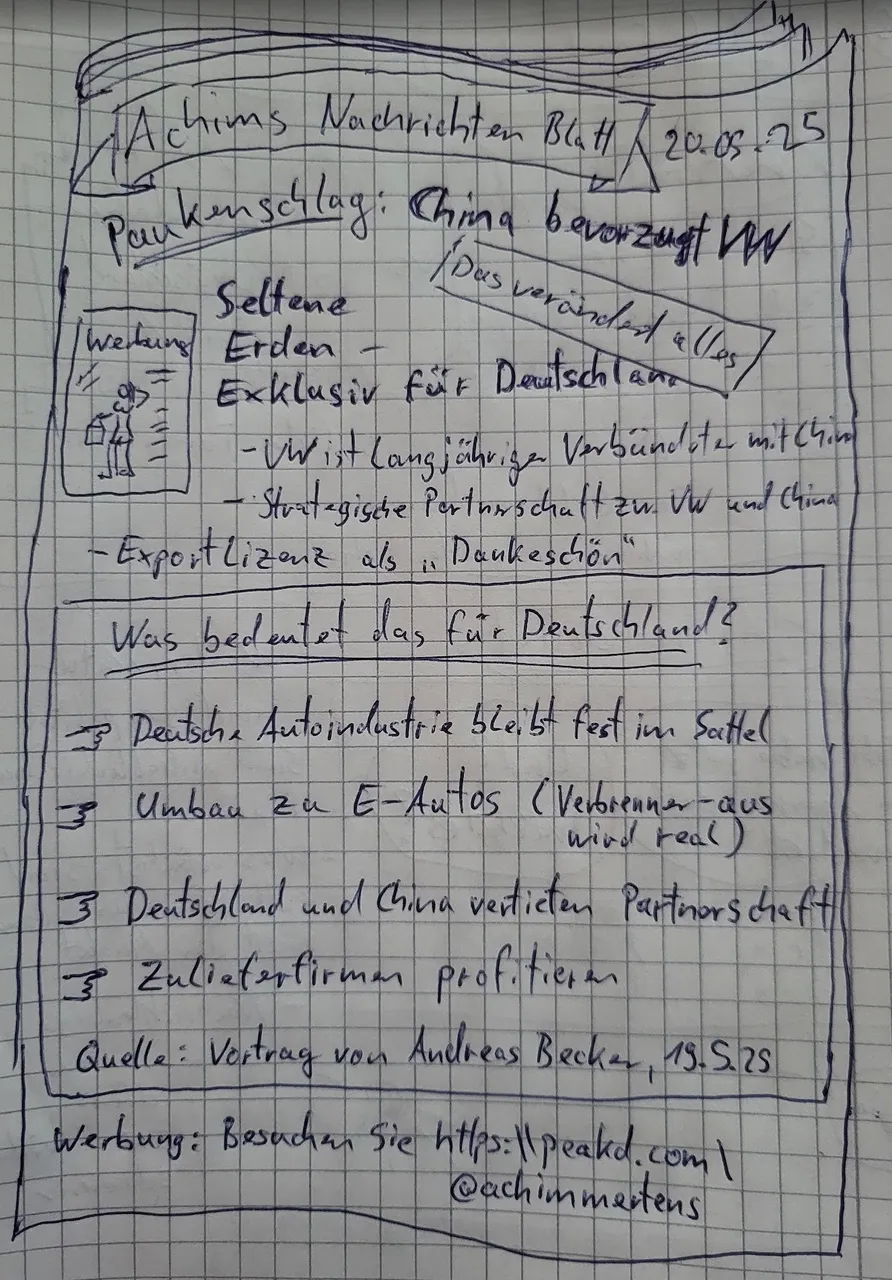 Achims Nachrichten Blatt
20.05.25
Paukenschlag: China bevorzugt VW
Das verändert alles
Seltene
Erden -
Exklusiv für Deutschland
Werbung
- VW ist langjähriger Verbündeter mit China
- Strategische Partnerschaft zu VW und China
- Exportlizenz als „Dankeschön"
Was bedeutet das für Deutschland?
Deutsche Autoindustrie bleibt fest im Sattel
Umbau zu E-Autos (Verbrenner-aus
wird real)
Deutschland und China vertiefen Partnerschaft
Zulieferfirmen profitieren
Quelle: Vortrag von Andreas Becker, 19.5.25
Werbung: Besuchen Sie https:\\peakd.com\
@achimmertens